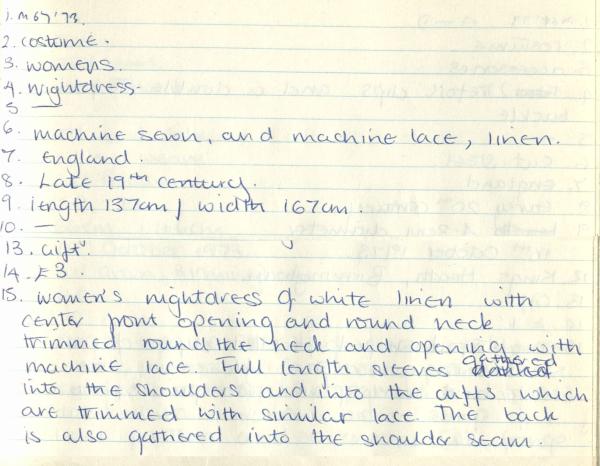 1. M67'73.
2. costume.
3. womens.
4. nightdress.
5 —
6. machine sewn, and machine lace, linen.
7. England.
8. Late 19th century.
9. length 137cm / width 167cm.
10. —
13. Gift.
14. £3.
15. women's nightdress of white linen with
center front opening and round neck
trimmed round the neck and opening with
machine lace. Full length sleeves gathered
into the shoulders and into the cuffs which
are trimmed with similar lace. The back
is also gathered into the shoulder seam.